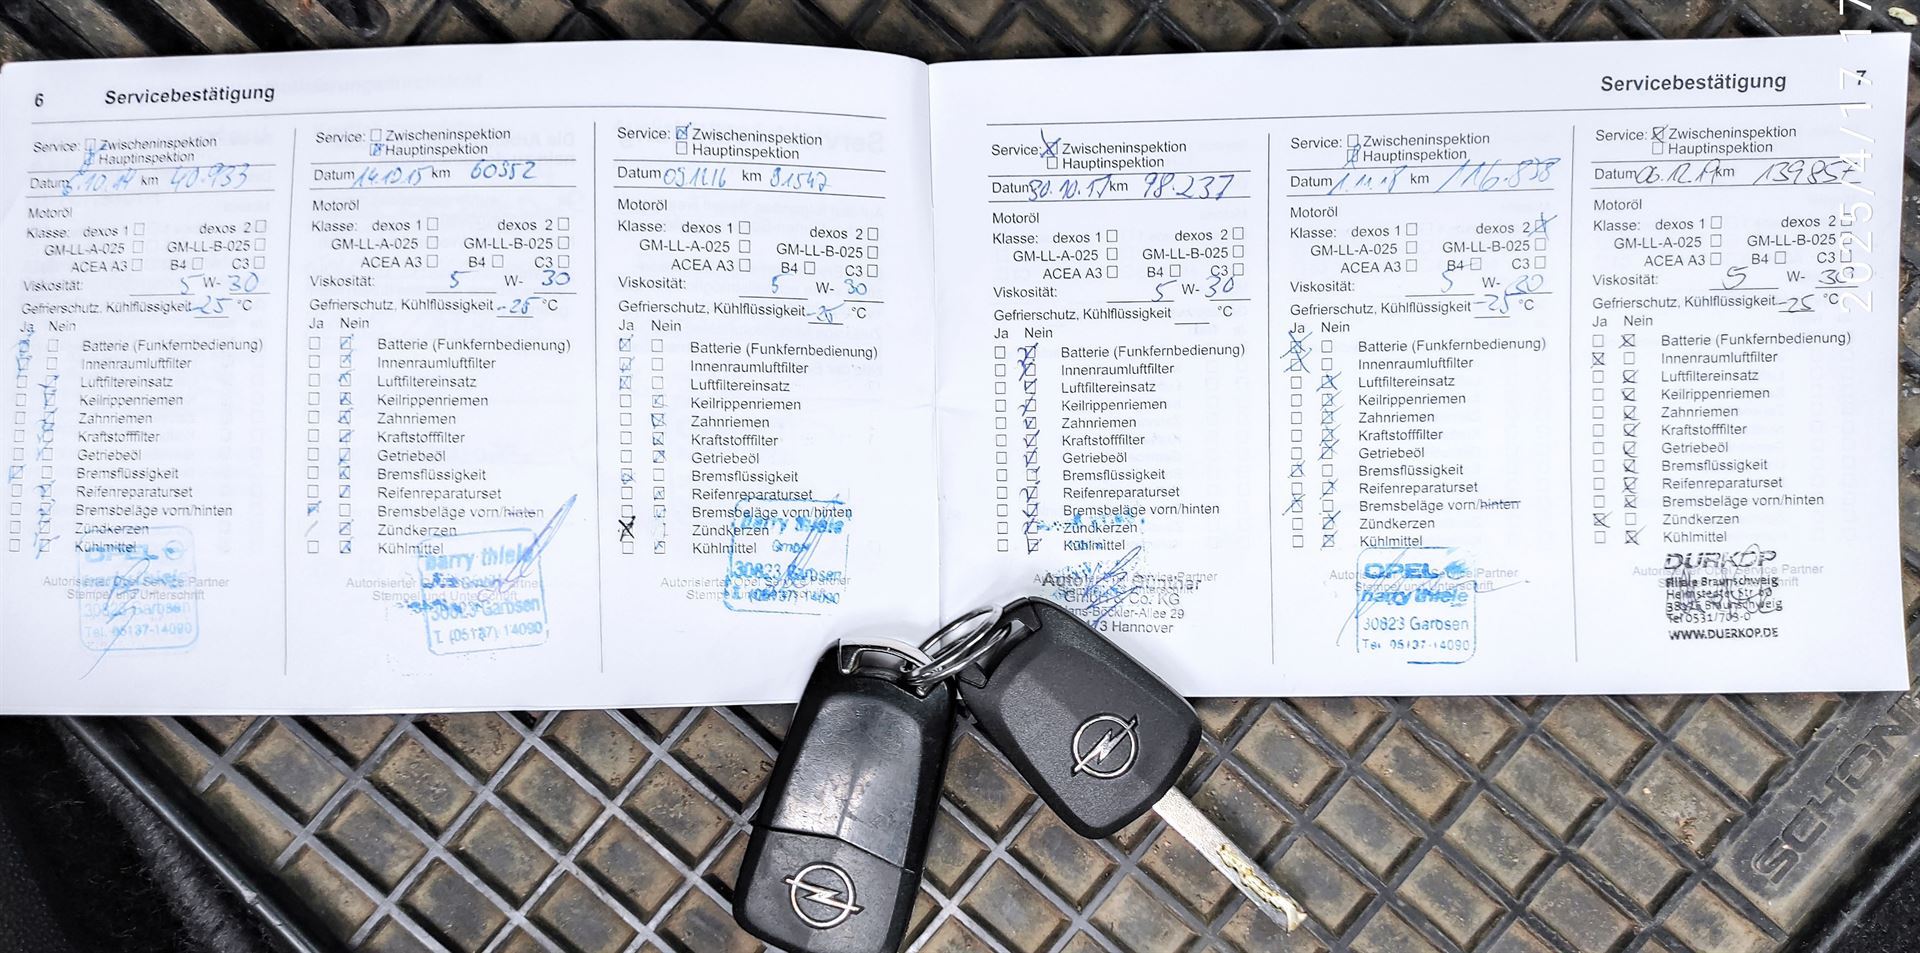 6 Servicebestätigung
Service: Zwischeninspektion
Hauptinspektion
Datum .10.14 km 40.933
Motoröl
Klasse: dexos 1 dexos 2
GM-LL-A-025 GM-LL-B-025
ACEA A3 B4 C3
Viskosität: 5 W- 30
Gefrierschutz, Kühlflüssigkeit -25 °C
Ja Nein
Batterie (Funkfernbedienung)
Innenraumluftfilter
Luftfiltereinsatz
Keilrippenriemen
Zahnriemen
Kraftstofffilter
Getriebeöl
Bremsflüssigkeit
Reifenreparaturset
Bremsbeläge vorn/hinten
Zündkerzen
Kühlmittel
Autorisierter Opel Service Partner
Stempel und Unterschrift
OPEL
harry thiele
30823 Garbsen
Tel. 05137-14090
Service: Zwischeninspektion
Hauptinspektion
Datum 14.10.15 km 60352
Motoröl
Klasse: dexos 1 dexos 2
GM-LL-A-025 GM-LL-B-025
ACEA A3 B4 C3
Viskosität: 5 W- 30
Gefrierschutz, Kühlflüssigkeit -25 °C
Ja Nein
Batterie (Funkfernbedienung)
Innenraumluftfilter
Luftfiltereinsatz
Keilrippenriemen
Zahnriemen
Kraftstofffilter
Getriebeöl
Bremsflüssigkeit
Reifenreparaturset
Bremsbeläge vorn/hinten
Zündkerzen
Kühlmittel
Autorisierter Opel Service Partner
Stempel und Unterschrift
harry thiele
GmbH
30823 Garbsen
T. (05137) 14090
Service: Zwischeninspektion
Hauptinspektion
Datum 09.11.16 km 81547
Motoröl
Klasse: dexos 1 dexos 2
GM-LL-A-025 GM-LL-B-025
ACEA A3 B4 C3
Viskosität: 5 W- 30
Gefrierschutz, Kühlflüssigkeit -25 °C
Ja Nein
Batterie (Funkfernbedienung)
Innenraumluftfilter
Luftfiltereinsatz
Keilrippenriemen
Zahnriemen
Kraftstofffilter
Getriebeöl
Bremsflüssigkeit
Reifenreparaturset
Bremsbeläge vorn/hinten
Zündkerzen
Kühlmittel
Autorisierter Opel Service Partner
Stempel und Unterschrift
harry thiele
GmbH
30823 Garbsen
(05137) 14090
Servicebestätigung 7
Service: Zwischeninspektion
Hauptinspektion
Datum 30.10.17 km 98.237
Motoröl
Klasse: dexos 1 dexos 2
GM-LL-A-025 GM-LL-B-025
ACEA A3 B4 C3
Viskosität: 5 W- 30
Gefrierschutz, Kühlflüssigkeit °C
Ja Nein
Batterie (Funkfernbedienung)
Innenraumluftfilter
Luftfiltereinsatz
Keilrippenriemen
Zahnriemen
Kraftstofffilter
Getriebeöl
Bremsflüssigkeit
Reifenreparaturset
Bremsbeläge vorn/hinten
Zündkerzen
Kühlmittel
Autorisierter Opel Service Partner
Stempel und Unterschrift
GmbH & Co. KG
Hans-Böckler-Allee 29
Hannover
Service: Zwischeninspektion
Hauptinspektion
Datum 1.11.18 km 116.838
Motoröl
Klasse: dexos 1 dexos 2
GM-LL-A-025 GM-LL-B-025
ACEA A3 B4 C3
Viskosität: 5 W- 30
Gefrierschutz, Kühlflüssigkeit -25 °C
Ja Nein
Batterie (Funkfernbedienung)
Innenraumluftfilter
Luftfiltereinsatz
Keilrippenriemen
Zahnriemen
Kraftstofffilter
Getriebeöl
Bremsflüssigkeit
Reifenreparaturset
Bremsbeläge vorn/hinten
Zündkerzen
Kühlmittel
Autorisierter Opel Service Partner
Stempel und Unterschrift
OPEL
harry thiele
30823 Garbsen
Tel. 05137-14090
Service: Zwischeninspektion
Hauptinspektion
Datum 06.12.19 km 139857
Motoröl
Klasse: dexos 1 dexos 2
GM-LL-A-025 GM-LL-B-025
ACEA A3 B4 C3
Viskosität: 5 W- 30
Gefrierschutz, Kühlflüssigkeit -25 °C
Ja Nein
Batterie (Funkfernbedienung)
Innenraumluftfilter
Luftfiltereinsatz
Keilrippenriemen
Zahnriemen
Kraftstofffilter
Getriebeöl
Bremsflüssigkeit
Reifenreparaturset
Bremsbeläge vorn/hinten
Zündkerzen
Kühlmittel
Autorisierter Opel Service Partner
Stempel und Unterschrift
DÜRKOP
Filiale Braunschweig
Helmstedter Str 60
38126 Braunschweig
Tel 0531/703-0
WWW.DUERKOP.DE
2025/4/17 17